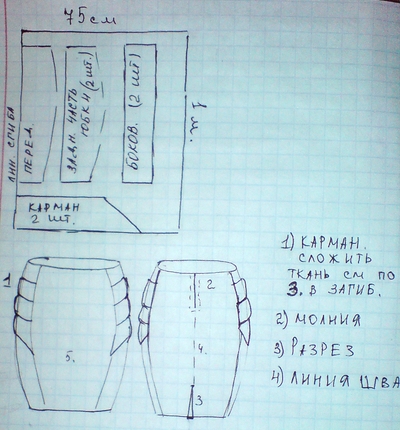 75см
ЛИН. СГИБА
ПЕРЕД.
ЗАДН. ЧАСТЬ
ЮБКИ (2 ШТ.)
БОКОВ. (2 ШТ)
1 м.
КАРМАН
2 ШТ.
1
5.
2
4.
3
1) КАРМАН.
СЛОЖИТЬ
ТКАНЬ СМ ПО
3. В ЗАГИБ.
2) МОЛНИЯ
3) РАЗРЕЗ
4) ЛИНИЯ ШВА